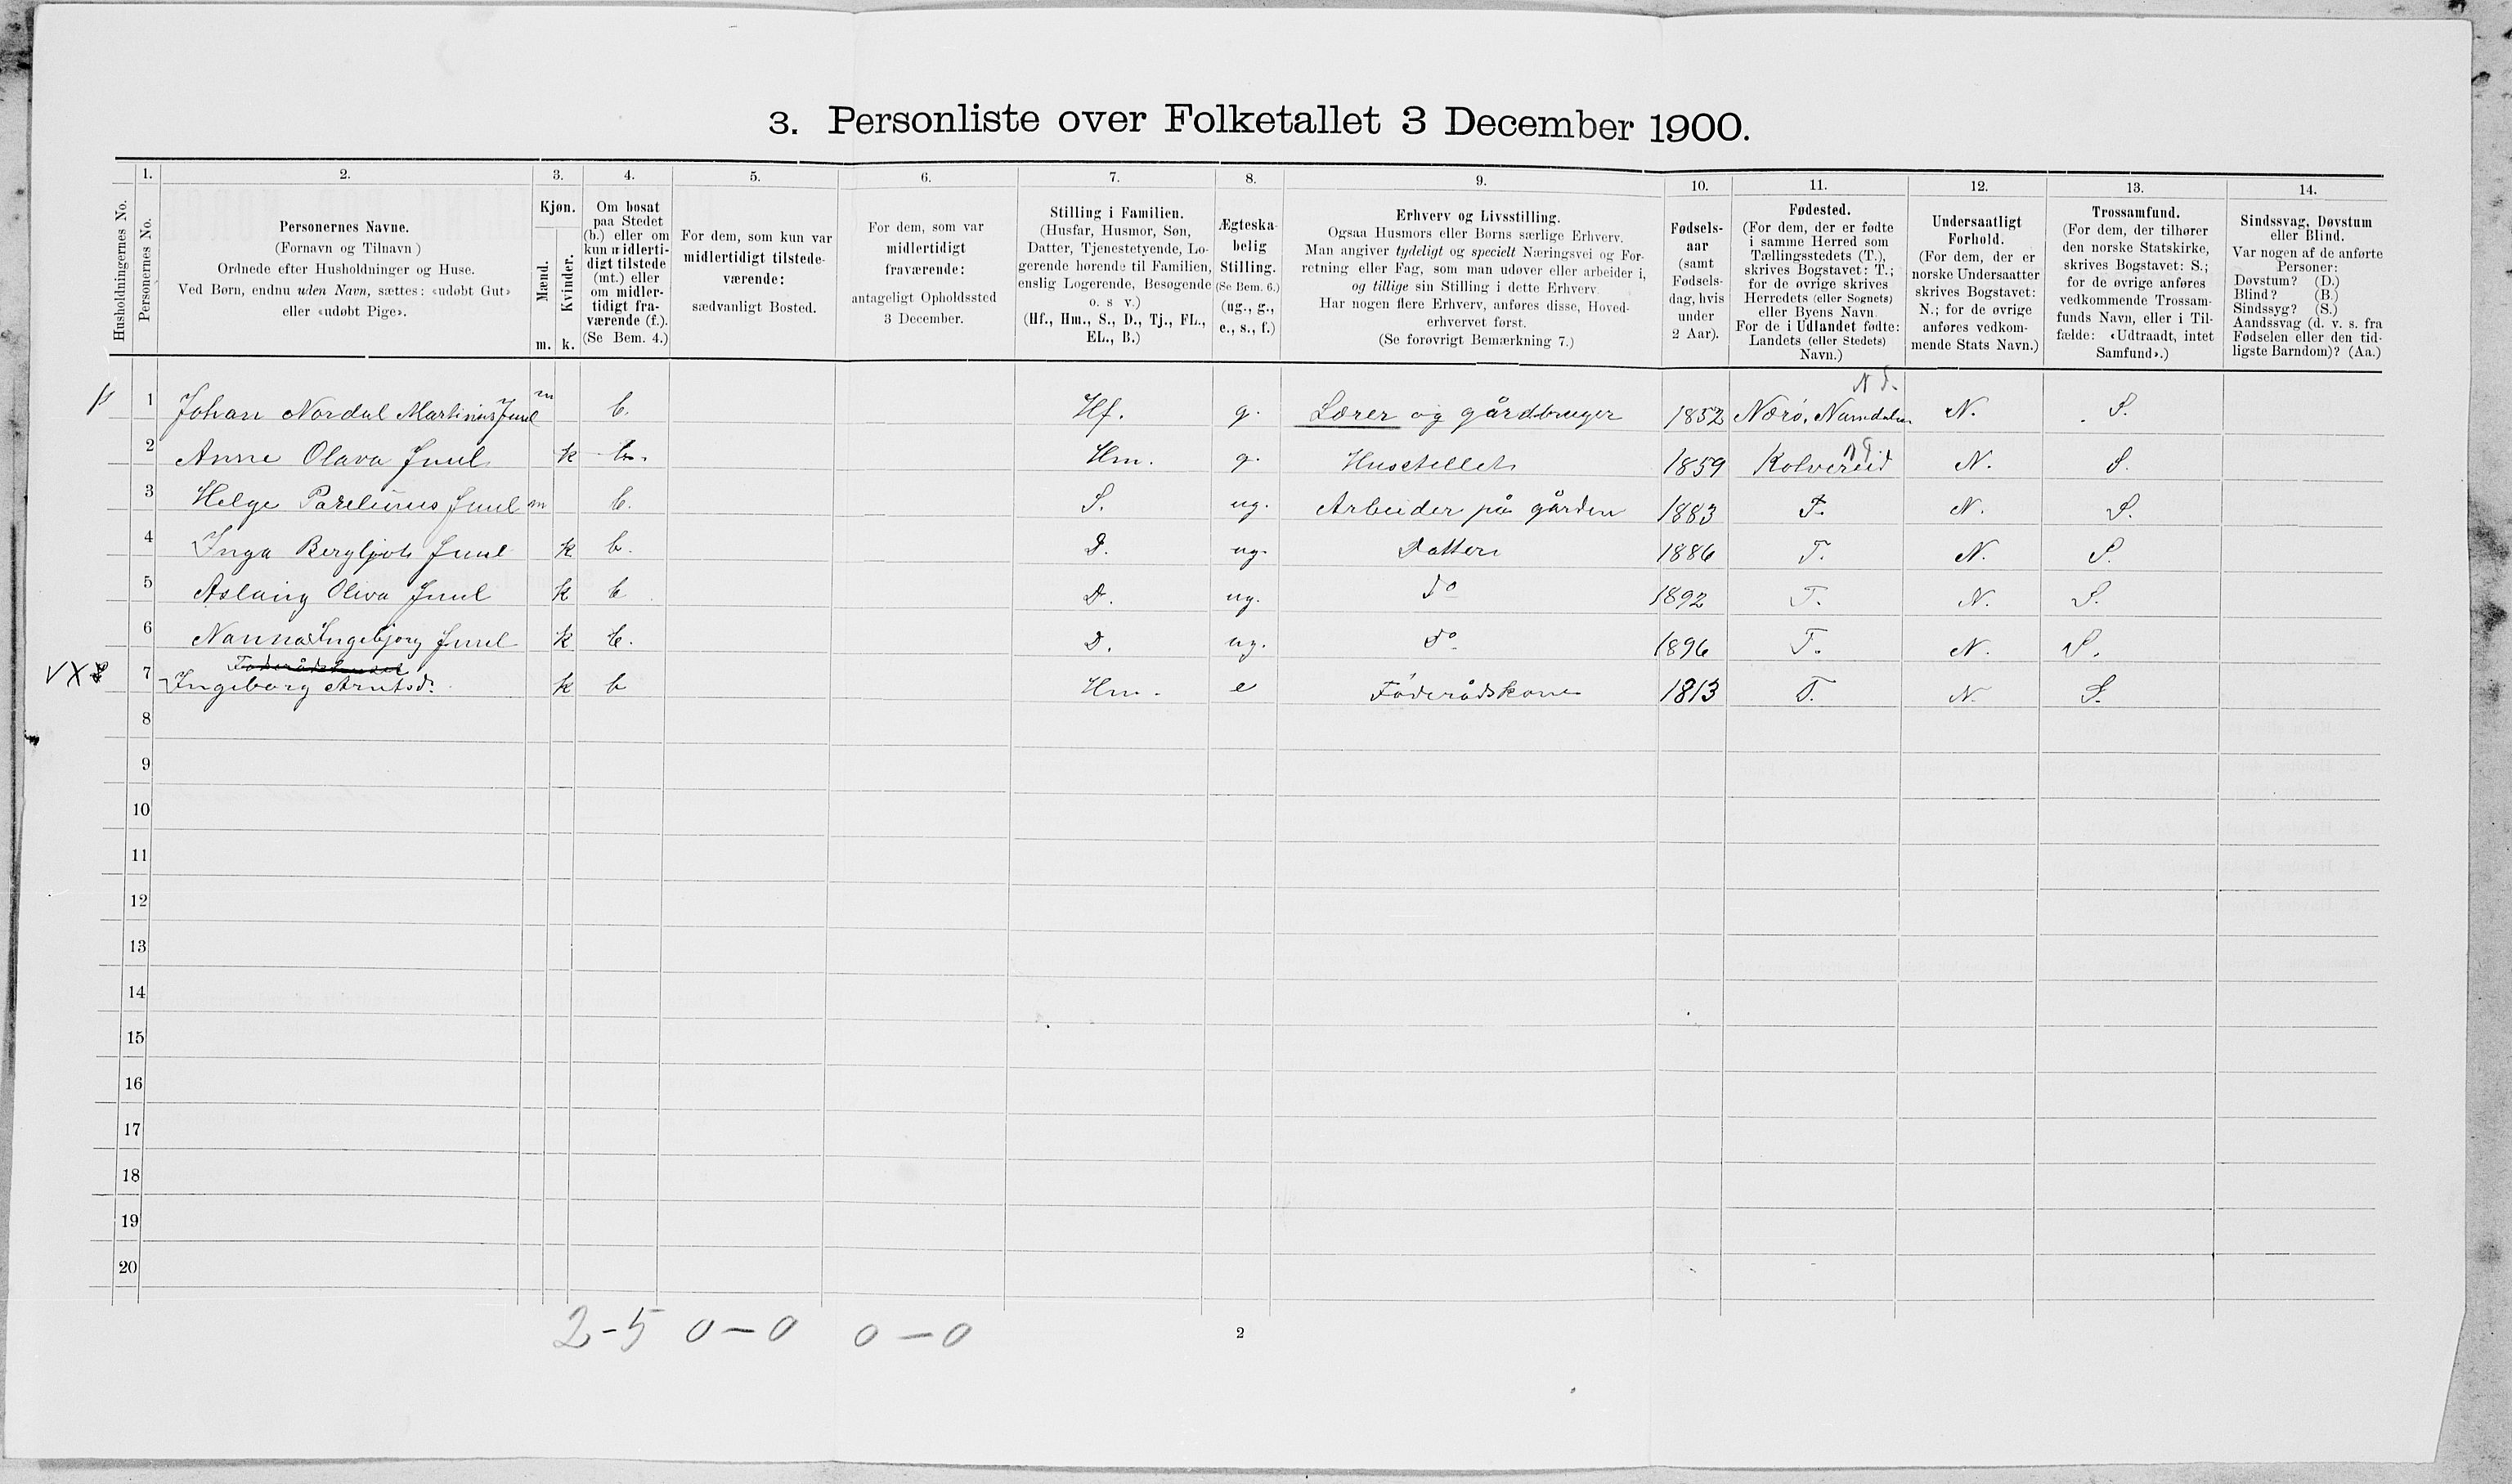 3. Personliste over Folketallet 3 December 1900.
Husholdningernes No.
1.
Personernes No.
2.
Personernes Navne.
(Fornavn og Tilnavn)
Ordnede efter Husholdninger og Huse.
Ved Børn, endnu uden Navn, sættes: «udøbt Gut»
eller «udøbt Pige».
3.
Kjøn.
Mænd.
Kvinder.
m. k.
4.
Om bosat
paa Stedet
(b.) eller om
kun midlerti-
digt tilstede
(mt.) eller
om midler-
tidigt fra-
værende (f.).
(Se Bem. 4.)
5.
For dem, som kun var
midlertidigt tilstede-
værende:
sædvanligt Bosted.
6.
For dem, som var
midlertidigt
fraværende:
antageligt Opholdssted
3 December.
7.
Stilling i Familien.
(Husfar, Husmor, Søn,
Datter, Tjenestetyende, Lo-
gerende hørende til Familien,
enslig Logerende, Besøgende
o. s v.)
(Hf., Hm., S., D., Tj., FL.,
EL., B.)
8.
Ægteska-
belig
Stilling.
(Se Bem. 6.)
(ug., g.,
e., s., f.)
9.
Erhverv og Livsstilling.
Ogsaa Husmors eller Børns særlige Erhverv.
Man angiver tydeligt og specielt Næringsvei og For-
retning eller Fag, som man udøver eller arbeider i,
og tillige sin Stilling i dette Erhverv
Har nogen flere Erhverv, anføres disse, Hoved-
erhvervet først.
(Se forøvrigt Bemærkning 7.)
10.
Fødsels-
aar
(samt
Fødsels-
dag, hvis
under
2 Aar).
11.
Fødested.
(For dem, der er fødte
i samme Herred som
Tællingsstedets (T.),
skrives Bogstavet: T.;
for de øvrige skrives
Herredets (eller Sognets)
eller Byens Navn
For de i Udlandet fødte:
Landets (eller Stedets)
Navn.)
12.
Undersaatligt
Forhold.
(For dem, der er
norske Undersaatter
skrives Bogstavet:
N.; for de øvrige
anføres vedkom-
mende Stats Navn.)
13.
Trossamfund.
(For dem, der tilhører
den norske Statskirke,
skrives Bogstavet: S.;
for de øvrige anføres
vedkommende Trossam-
funds Navn, eller i Til-
fælde: «Udtraadt, intet
Samfund».)
14.
Sindssvag, Døvstum
eller Blind.
Var nogen af de anførte
Personer:
Døvstum? (D.)
Blind? (B.)
Sindssyg? (S.)
Aandssvag (d. v. s. fra
Fødselen eller den tid-
ligste Barndom)? (Aa.)
1 Johan Nordal Martinus Juul m b. Hf. g. Lærer og gårdbruger 1852 Nærö, Namdalen N. S.
2 Anne Olava Juul k b. Hm. g. Husstellet 1859 Kolvereid N. S.
3 Helge Parelius Juul m b. S. ug. Arbeider på gården 1883 T. N. S.
4 Inga Bergljot Juul k b. D. ug. Datter 1886 T. N. S.
5 Aslaug Oliva Juul k b D. ug. do 1892 T. N. S.
6 Nanna Ingebjorg Juul k b. D. ug. do 1896 T. N. S.
Föderådshuset
7 Ingeborg Arntsd. k b Hm. e Föderådskone 1813 T. N. S.
8
9
10
11
12
13
14
15
16
17
18
19
20
2-5 0-0 0-0
2